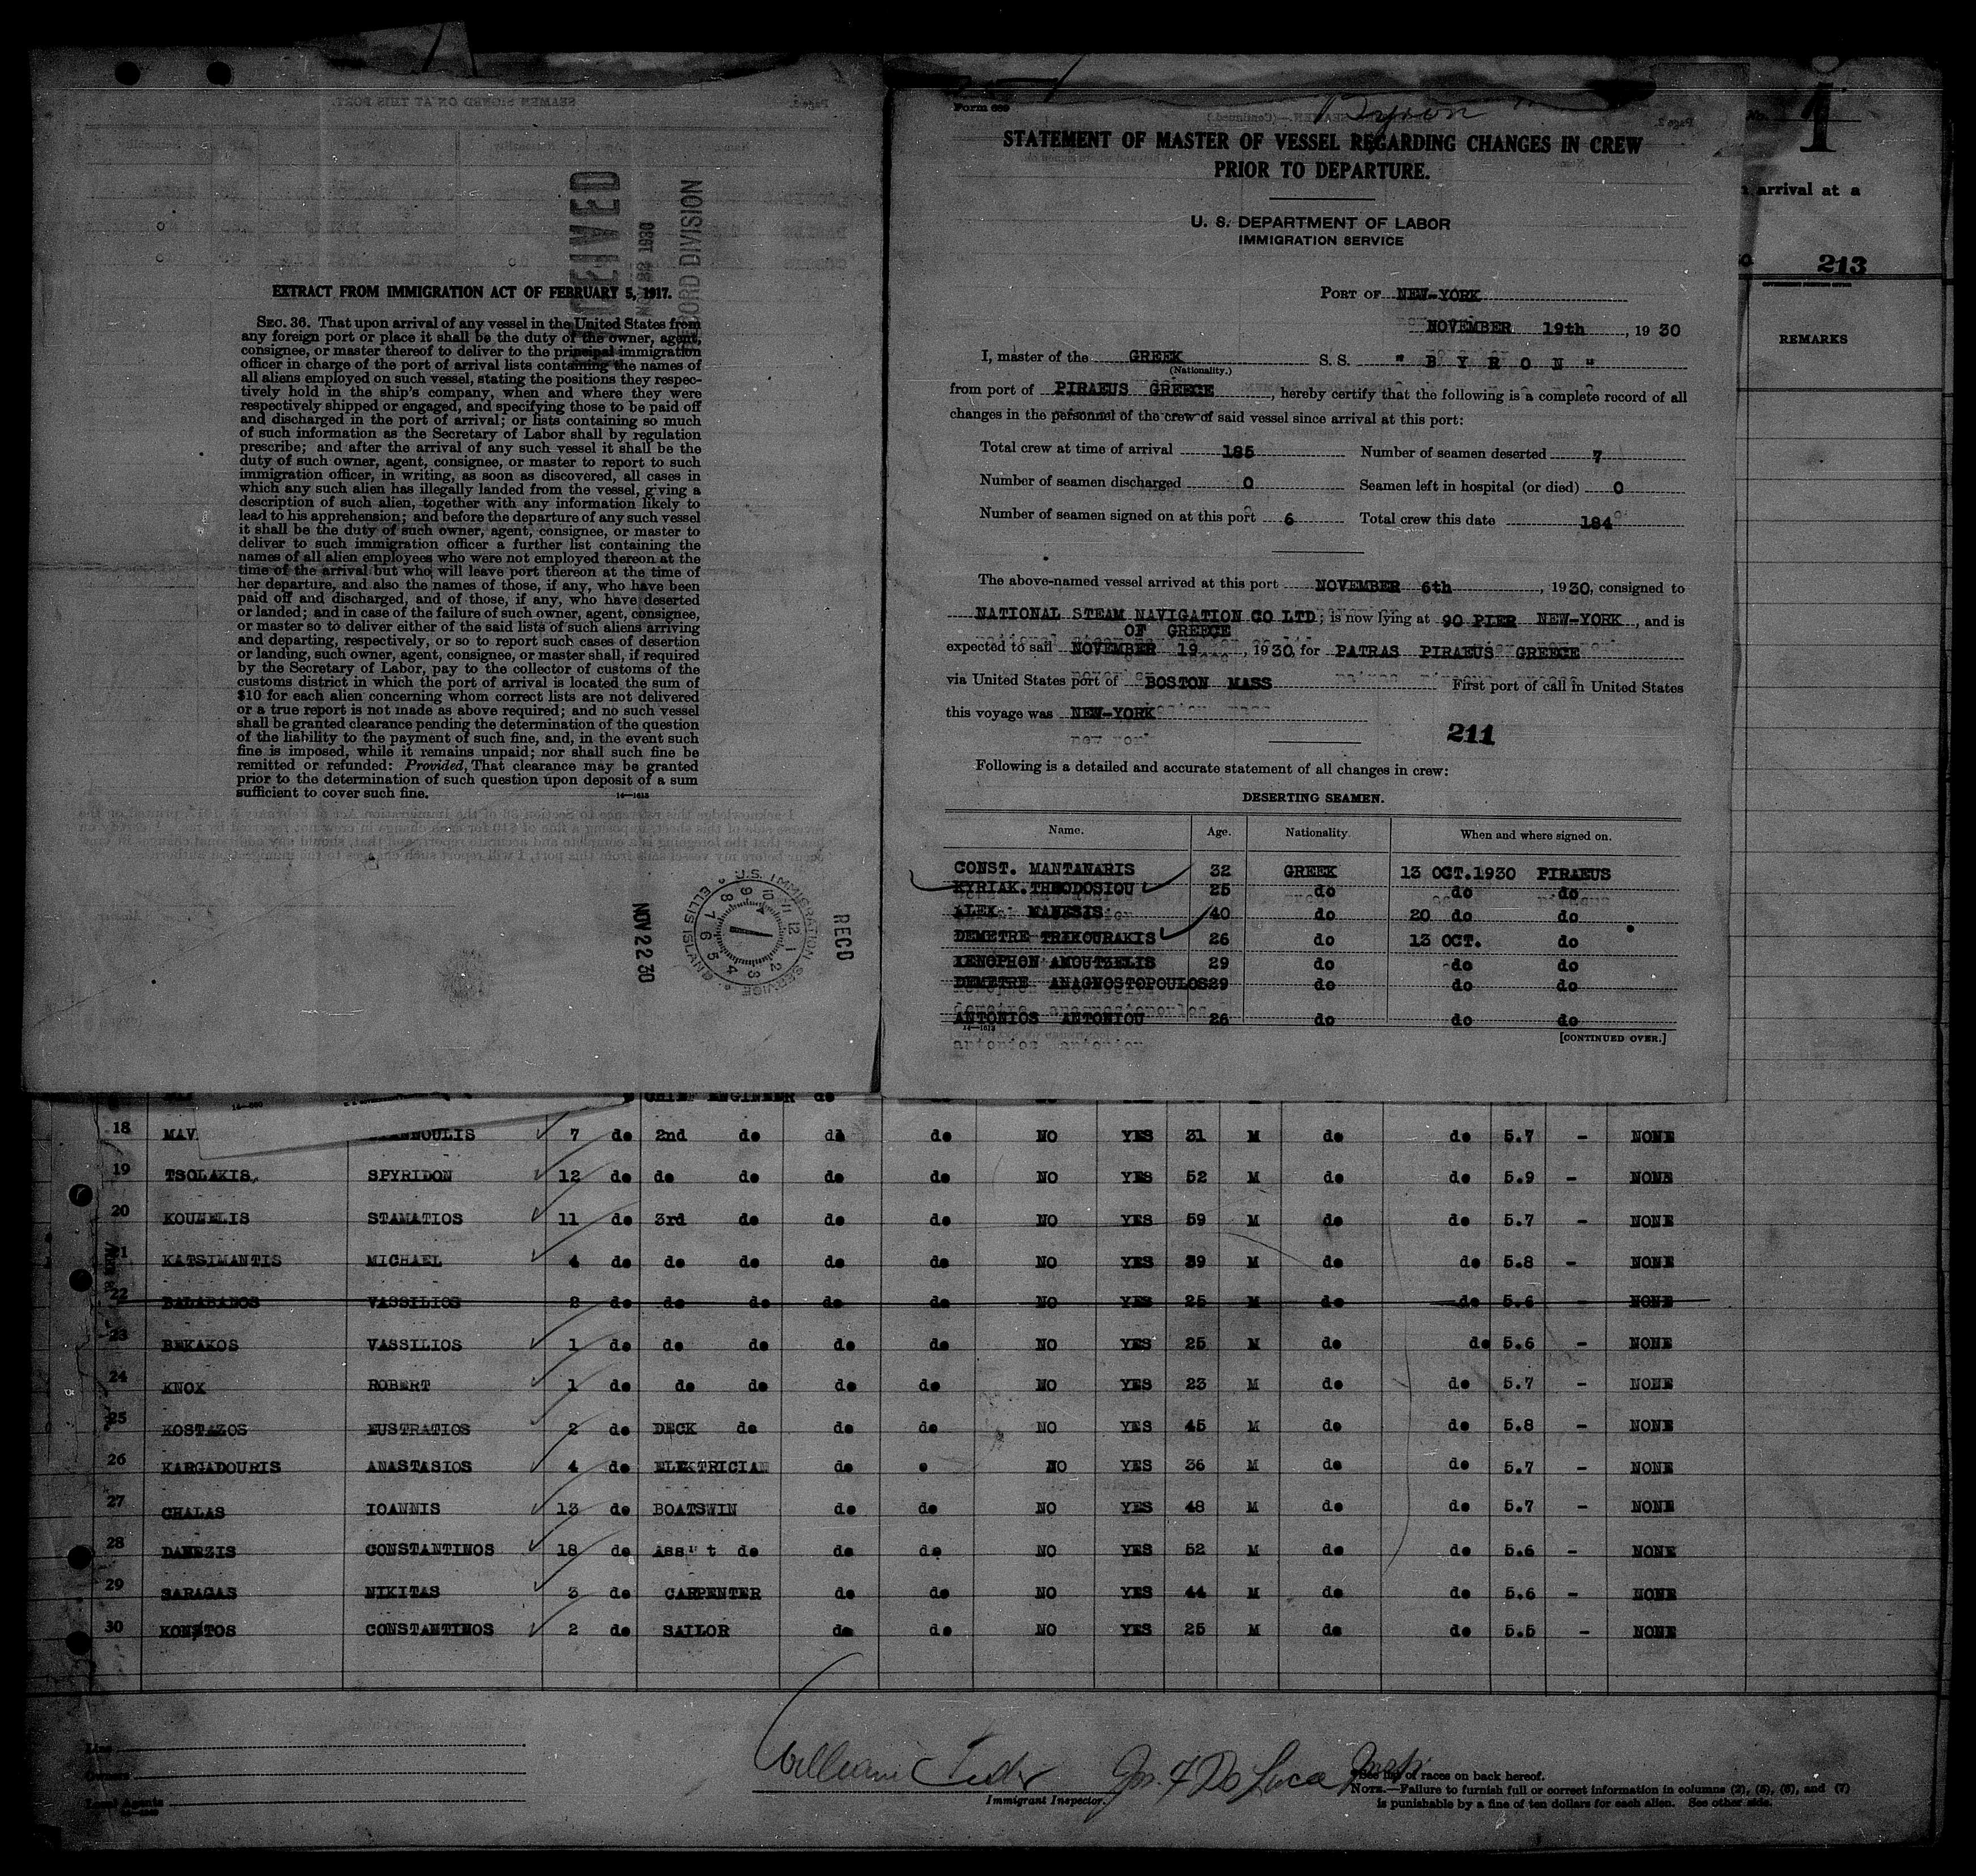 EXTRACT FROM IMMIGRATION ACT OF FEBRUARY 5, 1917.
SEC. 36. That upon arrival of any vessel in the United States from
any foreign port or place it shall be the duty of the owner, agent,
consignee, or master thereof to deliver to the principal immigration
officer in charge of the port of arrival lists containing the names of
all aliens employed on such vessel, stating the positions they respec-
tively hold in the ship's company, when and where they were
respectively shipped or engaged, and specifying those to be paid off
and discharged in the port of arrival; or lists containing so much
of such information as the Secretary of Labor shall by regulation
prescribe; and after the arrival of any such vessel it shall be the
duty of such owner, agent, consignee, or master to report to such
immigration officer, in writing, as soon as discovered, all cases in
which any such alien has illegally landed from the vessel, giving a
description of such alien, together with any information likely to
lead to his apprehension; and before the departure of any such vessel
it shall be the duty of such owner, agent, consignee, or master to
deliver to such immigration officer a further list containing the
names of all alien employees who were not employed thereon at the
time of the arrival but who will leave port thereon at the time of
her departure, and also the names of those, if any, who have been
paid off and discharged, and of those, if any, who have deserted
or landed; and in case of the failure of such owner, agent, consignee,
or master so to deliver either of the said lists of such aliens arriving
and departing, respectively, or so to report such cases of desertion
or landing, such owner, agent, consignee, or master shall, if required
by the Secretary of Labor, pay to the collector of customs of the
customs district in which the port of arrival is located the sum of
$10 for each alien concerning whom correct lists are not delivered
or a true report is not made as above required; and no such vessel
shall be granted clearance pending the determination of the question
of the liability to the payment of such fine, and, in the event such
fine is imposed, while it remains unpaid; nor shall such fine be
remitted or refunded: Provided, That clearance may be granted
prior to the determination of such question upon deposit of a sum
sufficient to cover such fine.
14—1613
RECEIVED
NOV 22 1930
RECORD DIVISION
RECD
U.S. IMMIGRATION SERVICE ELLIS ISLAND
NOV 22 30
Form 689
Byron
STATEMENT OF MASTER OF VESSEL REGARDING CHANGES IN CREW
PRIOR TO DEPARTURE.
U. S. DEPARTMENT OF LABOR
IMMIGRATION SERVICE
PORT OF NEW-YORK
NOVEMBER 19th, 1930
I, master of the GREEK S. S. " B Y R O N "
(Nationality.)
from port of PIRAEUS GREECE, hereby certify that the following is a complete record of all
changes in the personnel of the crew of said vessel since arrival at this port:
Total crew at time of arrival 185 Number of seamen deserted 7
Number of seamen discharged 0 Seamen left in hospital (or died) 0
Number of seamen signed on at this port 6 Total crew this date 184
The above-named vessel arrived at this port NOVEMBER 6th, 1930, consigned to
NATIONAL STEAM NAVIGATION CO LTD; is now lying at 90 PIER NEW-YORK, and is
OF GREECE
expected to sail NOVEMBER 19, 1930, for PATRAS PIRAEUS GREECE
via United States port of BOSTON MASS First port of call in United States
this voyage was NEW-YORK
211
Following is a detailed and accurate statement of all changes in crew:
DESERTING SEAMEN.
Name. Age. Nationality. When and where signed on.
CONST. MANTANARIS 32 GREEK 13 OCT.1930 PIRAEUS
KYRIAK.THEODOSIOU 25 do do do
ALEX. MANESIS 40 do 20 do do
DEMETRE TRIKOURAKIS 26 do 13 OCT. do
XENOPHON AMOUTZELIS 29 do do do
DEMETRE ANAGNOSTOPOULOS 29 do do do
ANTONIOS ANTONIOU 26 do do do
14—1613
[CONTINUED OVER.]
No. 1
arrival at a
213
REMARKS
CHIEF ENGINEER do
18 MAV NOULIS 7 do 2nd do do do NO YES 31 M do do 5.7 - NONE
19 TSOLAKIS, SPYRIDON 12 do do do do do NO YES 52 M do do 5.9 - NONE
20 KOUMELIS STAMATIOS 11 do 3rd do do do NO YES 59 M do do 5.7 - NONE
21 KATSIMANTIS MICHAEL 4 do do do do do NO YES 39 M do do 5.8 - NONE
22 BALABANOS VASSILIOS 2 do do do do do NO YES 25 M do do 5.6 - NONE
23 BEKAKOS VASSILIOS 1 do do do do do NO YES 25 M do do 5.6 - NONE
24 KNOX ROBERT 1 do do do do do NO YES 23 M do do 5.7 - NONE
25 KOSTAZOS EUSTRATIOS 2 do DECK do do do NO YES 45 M do do 5.8 - NONE
26 KARGADOURIS ANASTASIOS 4 do ELEKTRICIAN do NO YES 36 M do do 5.7 - NONE
27 CHALAS IOANNIS 13 do BOATSWIN do do NO YES 48 M do do 5.7 - NONE
28 DANEZIS CONSTANTINOS 18 do Ass"t do do do NO YES 52 M do do 5.6 - NONE
29 SARAGAS NIKITAS 3 do CARPENTER do do NO YES 44 M do do 5.6 - NONE
30 KONTOS CONSTANTINOS 2 do SAILOR do do NO YES 25 M do do 5.5 - NONE
Line
Owners
Local Agents
William
Immigrant Inspector.
See list of races on back hereof.
NOTE.—Failure to furnish full or correct information in columns (2), (5), (6), and (7)
is punishable by a fine of ten dollars for each alien. See other side.